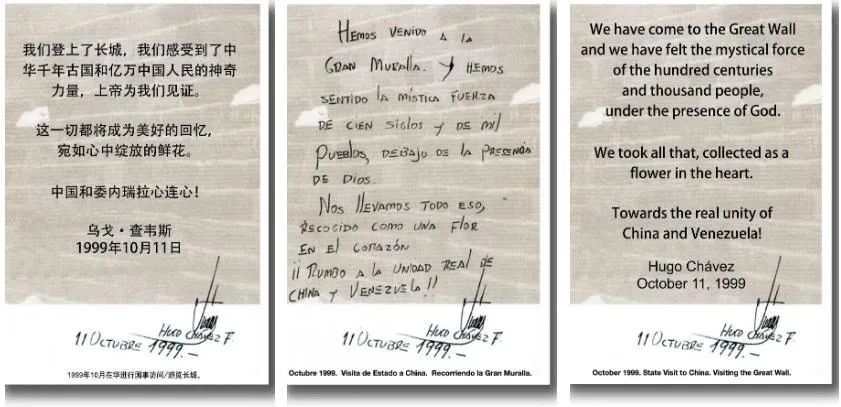 我们登上了长城，我们感受到了中
华千年古国和亿万中国人民的神奇
力量，上帝为我们见证。
这一切都将成为美好的回忆，
宛如心中绽放的鲜花。
中国和委内瑞拉心连心！
乌戈·查韦斯
1999年10月11日
11 OCTUBRE 1999.-
HUGO CHÁVEZ F.
1999年10月在华进行国事访问/游览长城。
HEMOS VENIDO A LA
GRAN MURALLA. Y HEMOS
SENTIDO LA MÍSTICA FUERZA
DE CIEN SIGLOS Y DE MIL
PUEBLOS, DEBAJO DE LA PRESENCIA
DE DIOS.
NOS LLEVAMOS TODO ESO,
RECOGIDO COMO UNA FLOR
EN EL CORAZÓN
¡¡RUMBO A LA UNIDAD REAL DE
CHINA Y VENEZUELA!!
11 OCTUBRE 1999.-
HUGO CHÁVEZ F.
Octubre 1999. Visita de Estado a China. Recorriendo la Gran Muralla.
We have come to the Great Wall
and we have felt the mystical force
of the hundred centuries
and thousand people,
under the presence of God.
We took all that, collected as a
flower in the heart.
Towards the real unity of
China and Venezuela!
Hugo Chávez
October 11, 1999
11 OCTUBRE 1999.-
HUGO CHÁVEZ F.
October 1999. State Visit to China. Visiting the Great Wall.